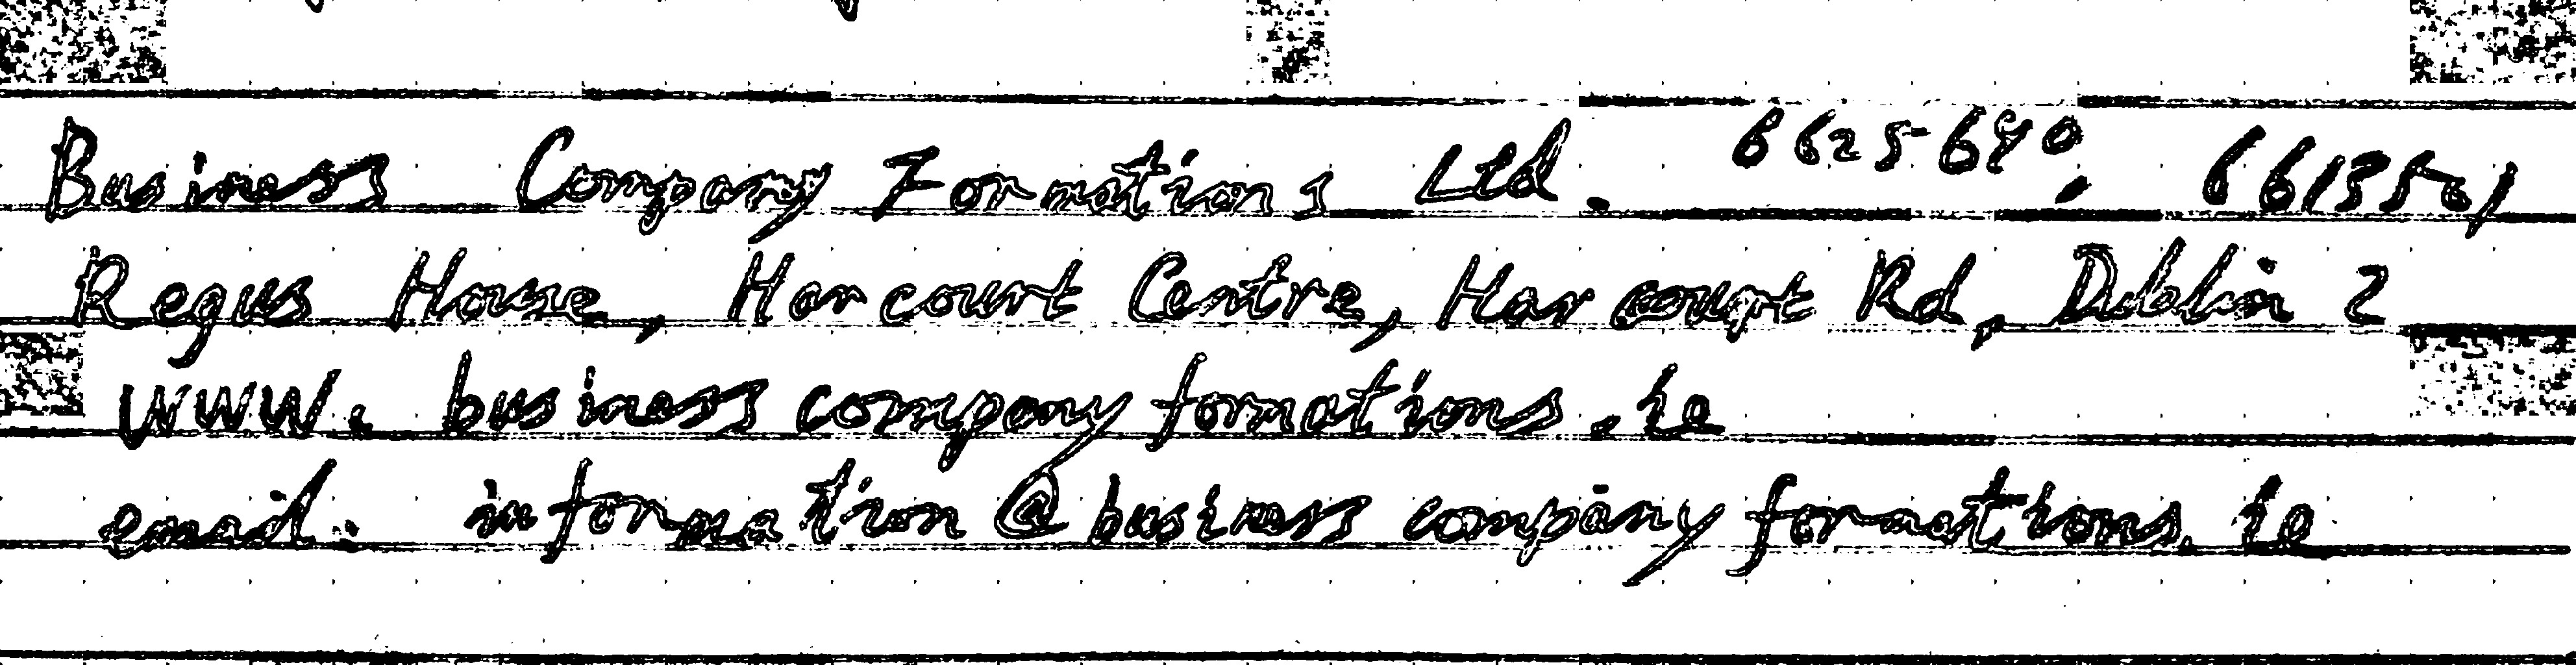 Business Company Formations Ltd. 6625680, 6613501
Regus House, Harcourt Centre, Harcourt Rd, Dublin 2
www.businesscompanyformations.ie
email: information@businesscompanyformations.ie